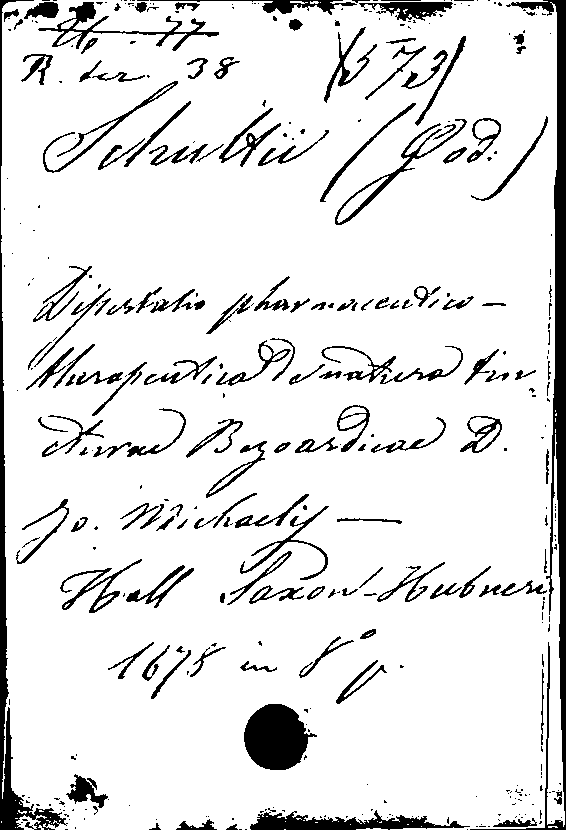 R. ter. 38 (573)
Schultii (God:)
Dissertatio pharmaceutico -
therapeutica de natura tin
cturae Bezoardicae D.
Jo. Michaelis —
Hall Saxon - Hubneri
1678 in 8° p.